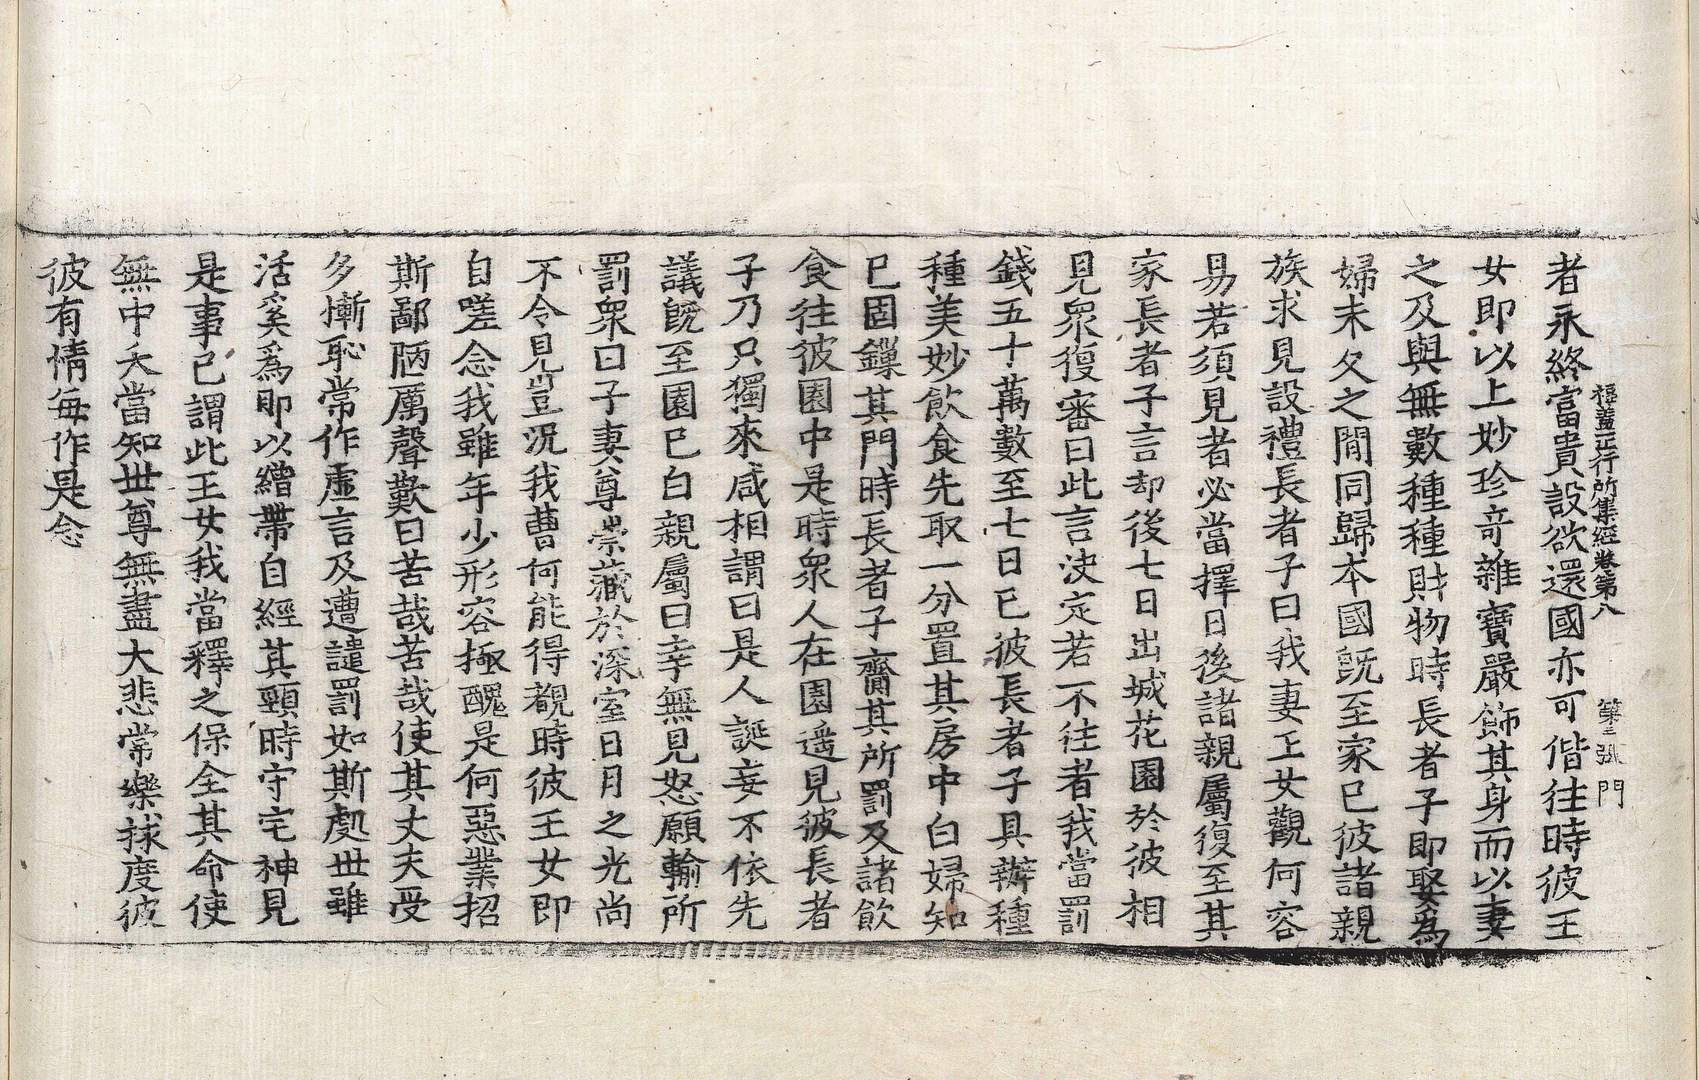 福蓋正行所集經卷第八　第三張　門
者永終當貴設欲還國亦可偕往時彼王
女即以上妙珍竒雜寶嚴飾其身而以妻
之及與無數種種財物時長者子即娶爲
婦未久之閒同歸本國旣至家已彼諸親
族求見設禮長者子曰我妻王女觀何容
易若須見者必當擇日後諸親屬復至其
家長者子言却後七日出城花園於彼相
見衆復審曰此言決定若不往者我當罰
錢五十萬數至七日已彼長者子具辦種
種美妙飮食先取一分置其房中白婦知
已固鏁其門時長者子齎其所罰及諸飮
食往彼園中是時衆人在園遥見彼長者
子乃只獨來咸相謂曰是人誕妄不依先
議旣至園已白親屬曰幸無見怒願輸所
罰衆曰子妻尊崇藏於深室日月之光尚
不令見豈況我曹何能得覩時彼王女即
自嗟念我雖年少形容極醜是何惡業招
斯鄙陋厲聲歎曰苦哉苦哉使其丈夫受
多慚恥常作虛言及遭譴罰如斯處世雖
活奚爲即以繒帶自經其頸時守宅神見
是事已謂此王女我當釋之保全其命使
無中夭當知世尊無盡大悲常樂捄度彼
彼有情每作是念